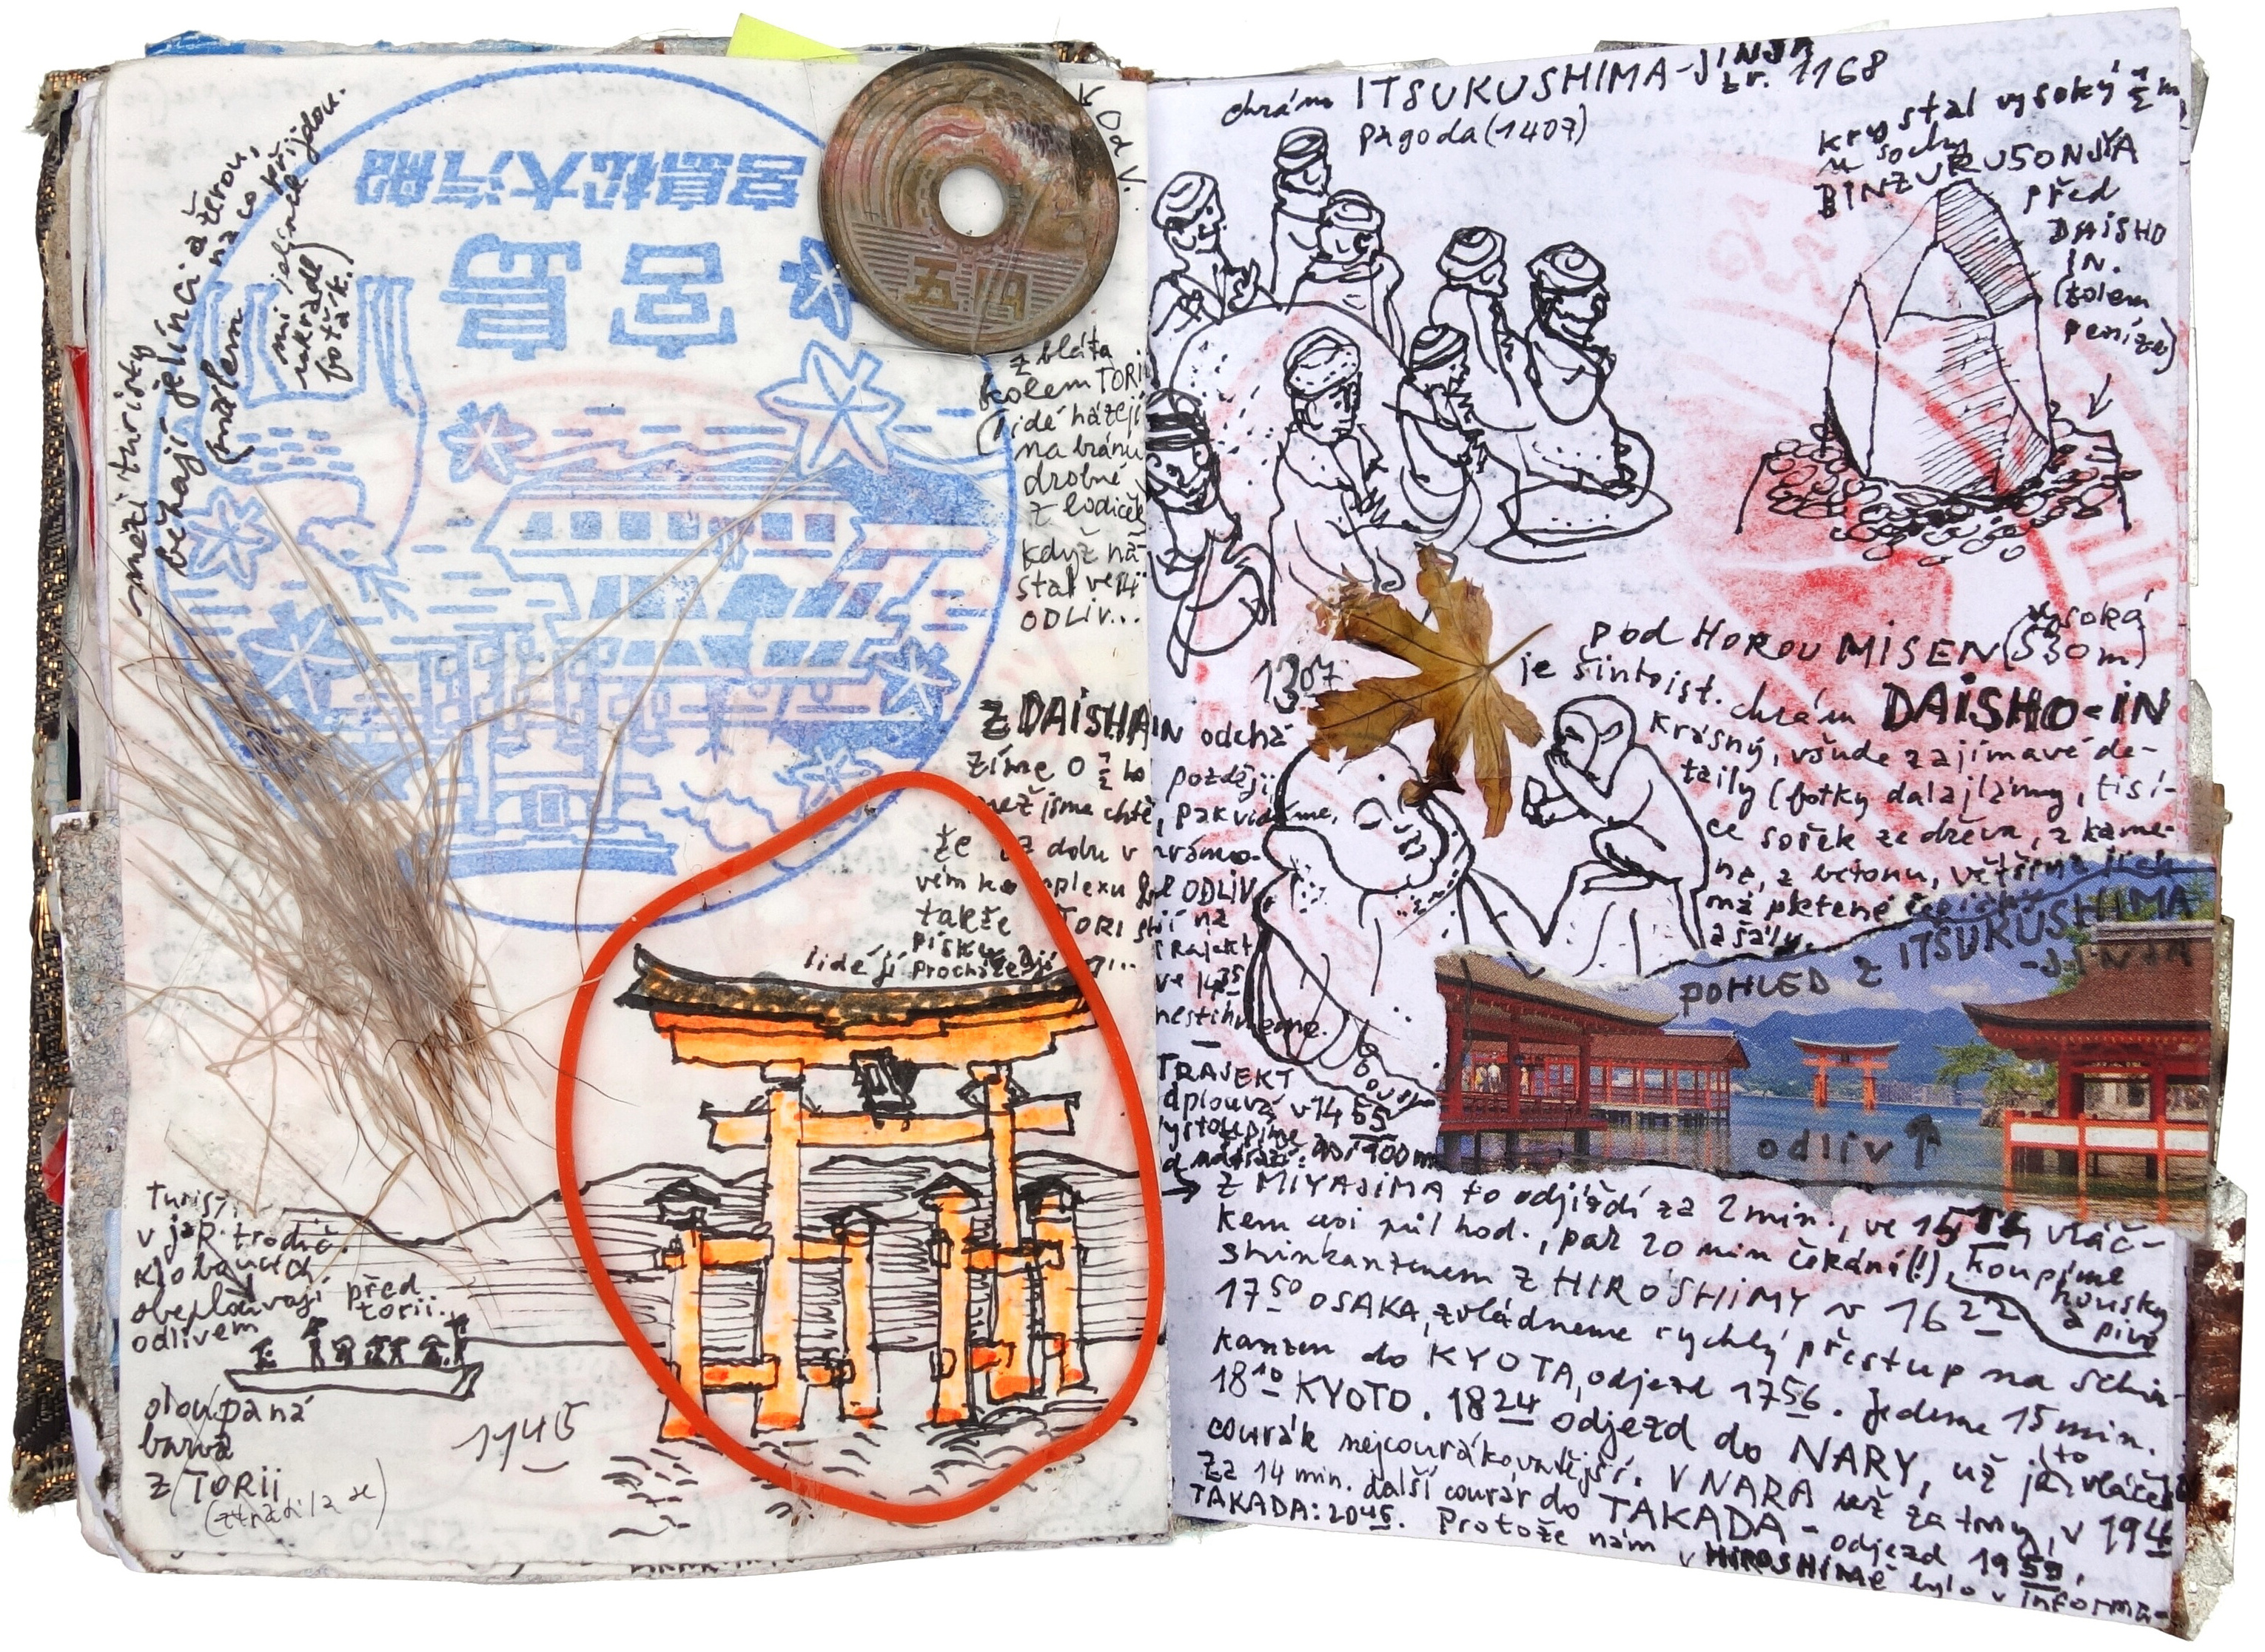 mezi turisty
běhají jelínci a žerou,
(málem na co přijdou.
mi jelínek
ukradl
foťák.)
宮島松大汽船
宮島
五円
↖ Od V.
z bláta
kolem TORI
(lidé házejí
na bránu
drobné
z lodiček
když na-
stal ve 14
ODLIV...
Z DAISHAIN odchá
zíme o ½ ho později,
než jsme chtě, pak vidíme,
že dobu v chrámo-
vém komplexu byl ODLIV
takže TORI stojí na
písku
lidé jí procházejí...
Trajekt
ve 14 35
nestihneme.
TRAJEKT
odplouvá v 14 55
vystoupíme
Turisti
v jap. tradič.
kloboucích
obeplouvají před
odlivem torii.
oloupaná
barva
z TORII
(ztratila se)
11 45
chrám ITSUKUSHIMA-JINJA
zr. 1168
Pagoda (1407)
krystal vysoký ½ m
u sochy
BINZURUSONJYA
před
DAISHO
IN.
(kolem
peníze)
1307
pod HOROU MISEN (vysoká 530 m)
je šintoist. chrám DAISHO-IN
Krásný, všude zajímavé de-
taily (fotky dalajlámy, tisí-
ce sošek ze dřeva, z kame-
ne, z betonu, většina jich
má pletené čepičky
a šály.
POHLED Z ITSUKUSHIMA
-JINJA
odliv ↑
→ Z MIYAJIMA to odjíždí za 2 min., ve 15 vláč-
kem asi půl hod., pak 20 min čekání (!), koupíme
housky
a pivo
shinkanzenem z HIROSHIMY v 16 22
17 50 OSAKA, zvládneme rychlý přestup na Schin-
kanzen do KYOTA, odjezd 17 56. Jedeme 15 min.
18 10 KYOTO. 18 24 odjezd do NARY, už je to vláček
courák nejcourákovatější. V NARA už za tmy, v 19 4
Za 14 min. další courák do TAKADA - odjezd 19 59,
TAKADA: 20 45. Protože nám
v HIROSHIMĚ bylo v informa-